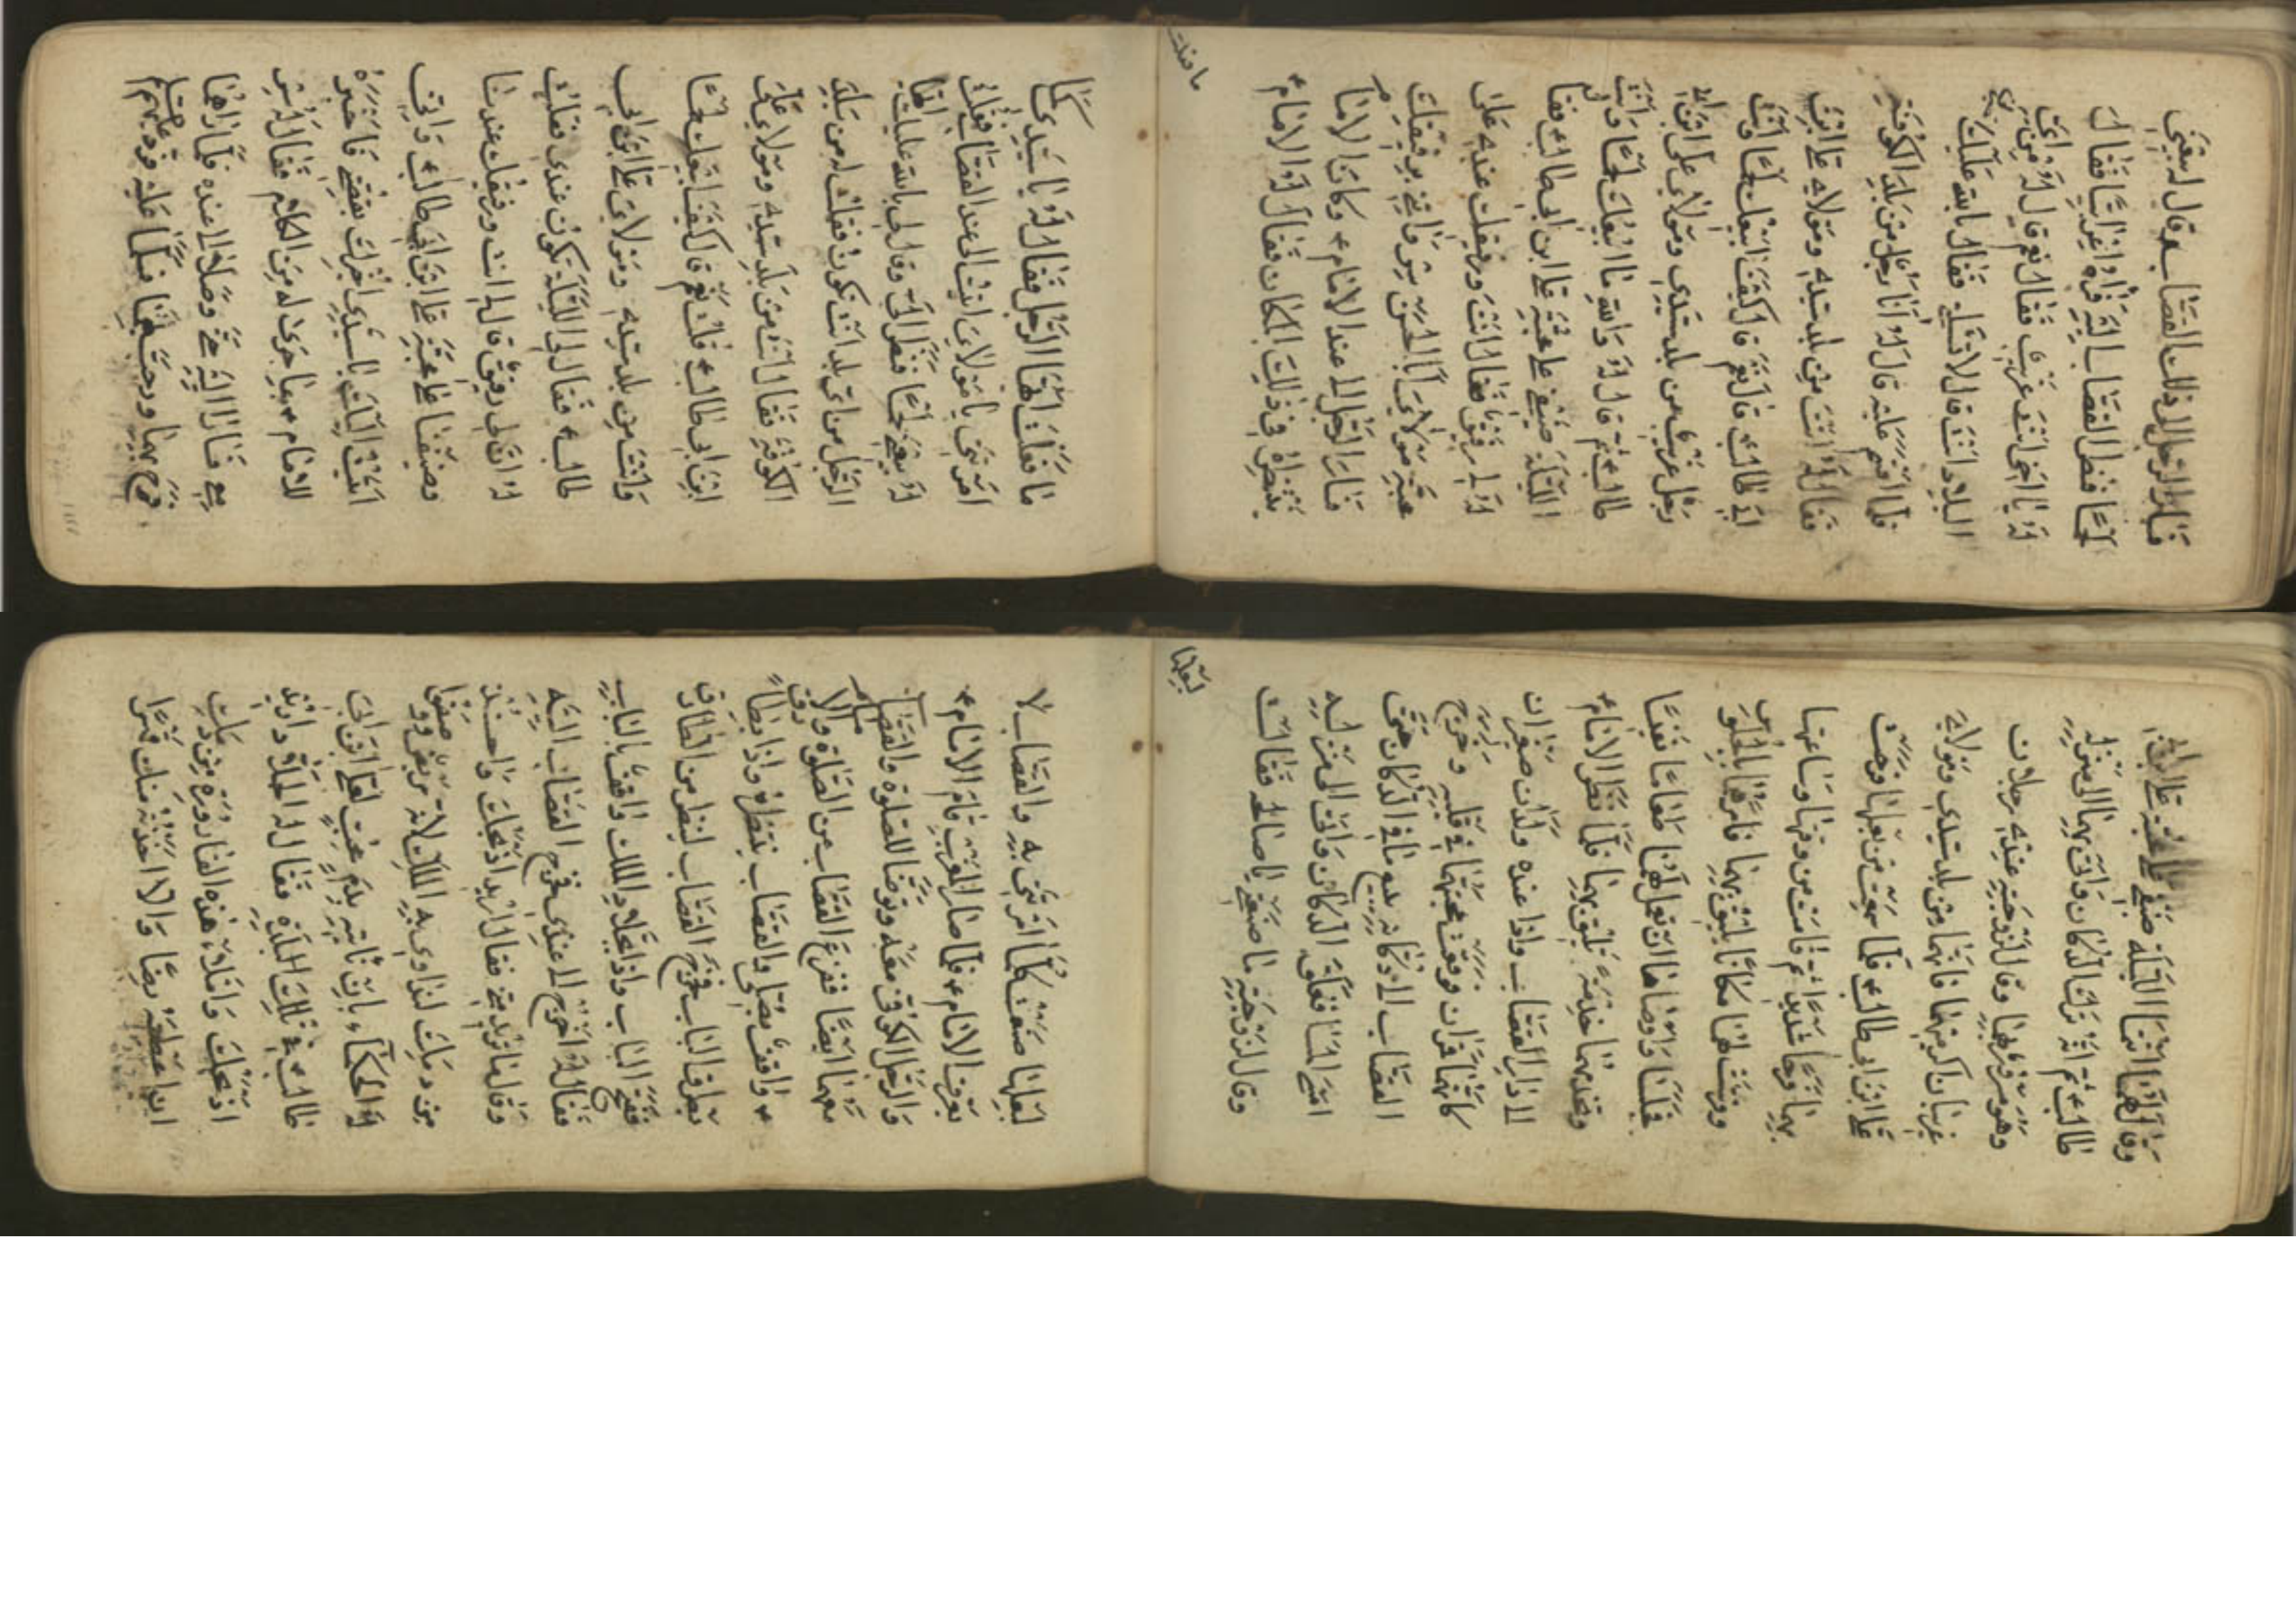 فسار الرجل الى دكان القصاب وقال له بعني
لحما فنظر القصاب اليه فراه غريبا فقال
له يا اخي انت غريب فقال نعم قال له من اي
البلاد انت قال لا تسالني فقال بالله عليك
فلما اقسم عليه قال له انا رجل من بلد الكوفة
فقال له انت من بلد سيدي ومولاي علي ابن
ابي طالب قال نعم قال كيف ابيعك لحما وانت
رجل غريب من بلد سيدي ومولاي علي ابن ابي
طالب ثم قال له والله ما ابيعك لحما وانت
الليلة ضيفي على محبة علي ابن ابي طالب فقا
له لي رفيق فقال انت ورفيقك عندي على
محبة مولاي ابا الحسن سر واتني برفيقك
فسار الرجل الى عند الامام وكان الامام
ينتظره في ذلك المكان فقال له الامام
ما فعلت
ما فعلت ايها الرجل فقال له يا سيدي كما
امرتني يا مولاي اتيت الى عند القصاب فقلت
له بيعني لحما فنظر الي وقال لي بالله عليك ايها
الرجل من اي بلد انت تكون فقلت له من بلد
الكوفة فقال انت من بلد سيدي ومولاي علي
ابن ابي طالب قلت نعم قال كيف ابيعك لحما
وانت من بلد سيدي ومولاي علي ابن ابي
طالب فقال لي الليلة تكون عندي فقلت
له ان لي رفيق قال لي انت ورفيقك عندنا
وضيفنا على محبة علي ابن ابي طالب واتي
اتيت اليك يا سيدي اخبرك بقصتي فاخبره
للامام بما جرى له من الكلام فقال له سر
معي فسارا وصلا الى عنده فلما راهما
فرح بهما ورحب بهما فسلما عليه فرد عليهم
وقال لهما انتما الليلة ضيفي على محبة علي ابن ابي
طالب ثم انه ترك الدكان واتى بهما الى منزله
وهو مسرور بهما وقال لزوجته عندي رجلان
غريبان اكرميهما فانهما من بلد سيدي ومولاي
علي ابن ابي طالب فلما سمعت من بعلها فرحت
بهما فرحا شديد ثم قامت من وقتها وساعتها
وفرشت لهما مكانا يليق بهما فامرهما بالجلوس
فجلسا واوصاها ان تعمل لهما طعاما نفيسا
وتخدمهما خدمة تليق بهما فلما نظر الامام
الى دار القصاب واذا عنده ولدان صغيران
كانهما قمران فوقعت محبتهما في قلبه وخرج
القصاب الى دكانه يبيع ما في الدكان حتى
امسى المسا فغلق الدكان واتى الى منزله
وقال لزوجته ما صنعتي يا صالحة فقالت
لبعلها
لبعلها صنعت كلما امرتني به والقصاب لا
يعرف الامام فلما صار المغرب قام الامام
والرجل الكوفي معه وتوضا للصلوة والقصاب
معهما ايضا ففرغ القصاب من الصلوة والامام
واقف يصلي والقصاب ينتظره واذا بطارق
يطرق الباب فخرج القصاب لينظر من الطارق
ففتح الباب واذا بجلاد الملك واقف بالباب
فقال له اخرج الى عندي فخرج القصاب اليه
وقال ما تريد مني فقال اريد اذبحك واخذ
من دمك لنداوي به الملك لانه مريض ووصفوا
له الحكماء بان ناتيه بدم محب لعلي ابن ابي
طالب في تلك البلدة فقال له الجلاد اريد
اذبحك واملا هذه القارورة من دمك
رضا والا اخذته منك قهرا